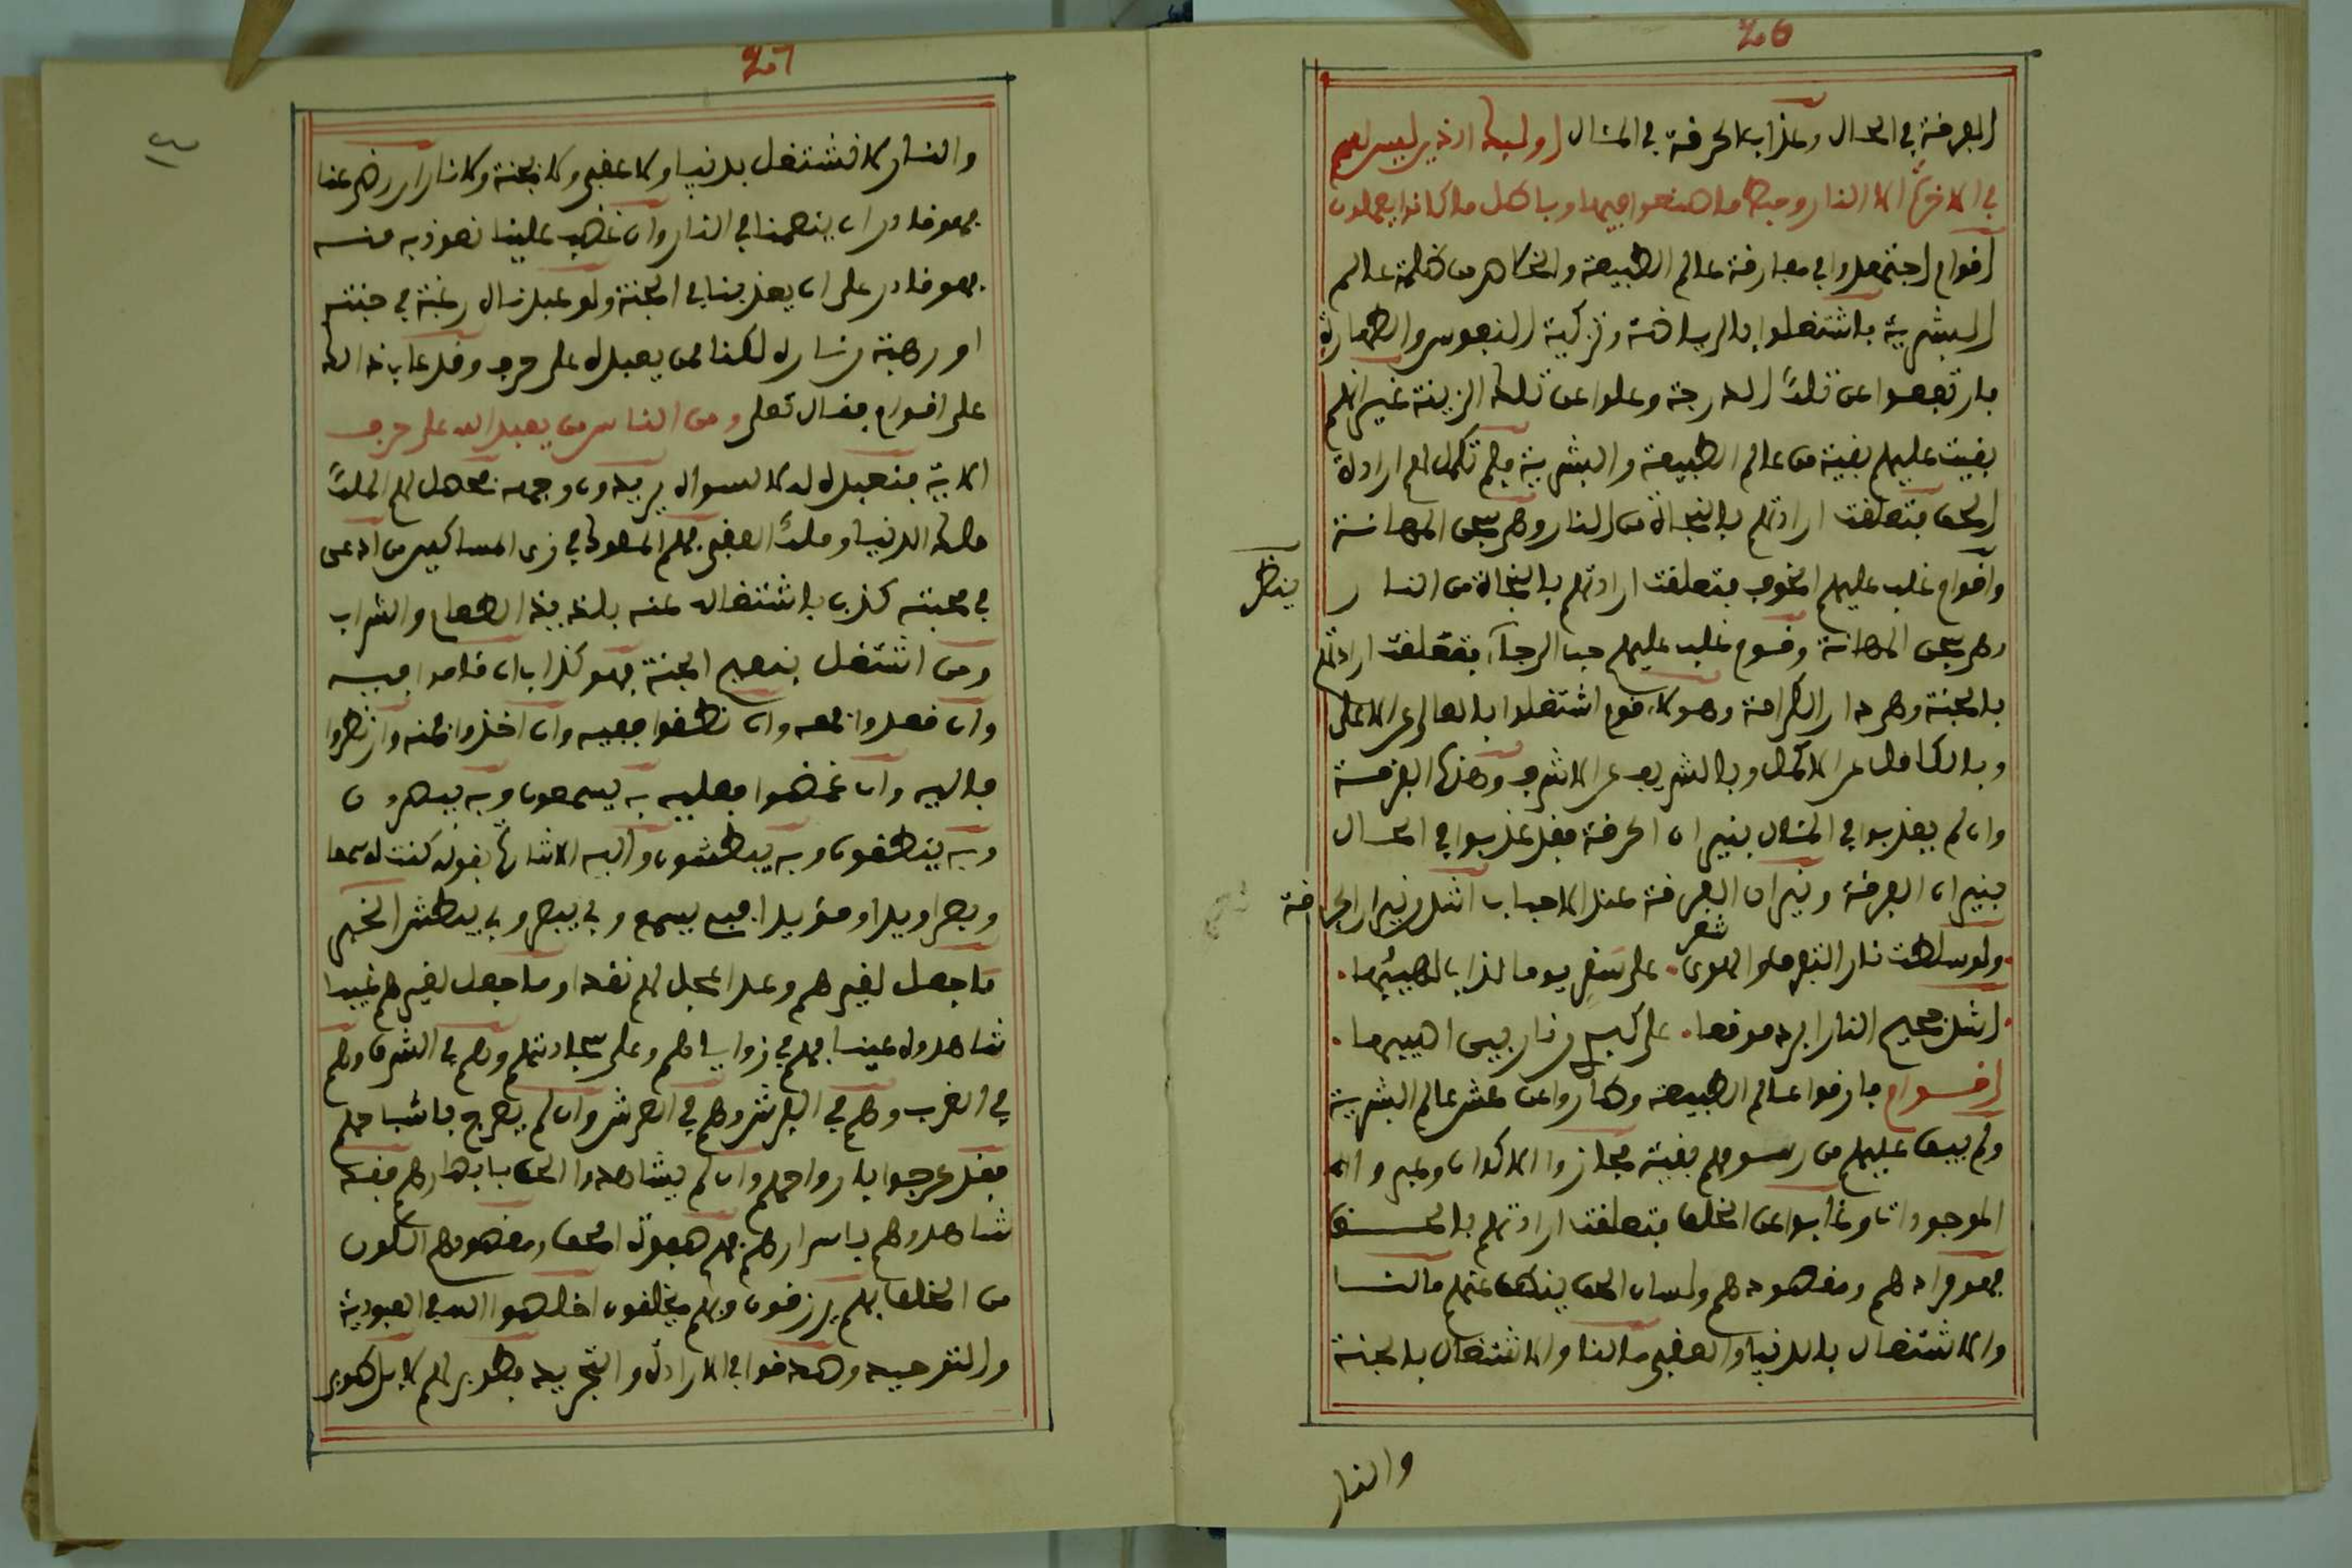 26
الفرقة في الحال وعذاب الحرقة في المئال أولئك الذين ليس لهم
في الآخرة إلا النار وحبط ما صنعوا فيها وباطل ما كانوا يعملون
أقوام اجتهدوا في مفارقة عالم الطبيعة والخلاص من ظلمة عالم
البشرية فاشتغلوا بالرياضة وتزكية النفوس والطهارة
فارتفعوا عن تلك الدرجة وعلوا عن تلك الزينة غير أنهم
بقيت عليهم بقية من عالم الطبيعة والبشرية فلم تكمل لهم ارادة
الحق فتعلقت ارادتهم بالنجاة من النار وهي سجن المهانة
وأقوام غلب عليهم الخوف فتعلقت ارادتهم بالنجاة من النار
ينظر
وهي سجن المهانة وقوم غلب عليهم حب الرجاء فتعلقت ارادتهم
بالجنة وهي دار الكرامة وهؤلاء قوم اشتغلوا بالعالي عن الأعلى
وبالكامل عن الأكمل وبالشريف عن الأشرف وهذه الفرقة
وان لم يعذبوا في المئال بنيران الحرقة فقد عذبوا في الحال
بنيران الفرقة ونيران الفرقة عند الأحباب أشد من نيران الحرقة
شعر
ولو سلطت نار التفرق والهوى على سقر يوما لذاب لهيبها
أشد جحيم النار ابرد موقعا على كبدي من نار بين اصيبها
أقوام فارقوا عالم الطبيعة وطاروا عن عش عالم البشرية
ولم يبق عليهم من رسومهم بقية فجازوا الاكوان وعبروا
الموجودات وغابوا عن الخلق فتعلقت ارادتهم بالحق
فهو مرادهم ومقصودهم ولسان الحق ينطق عنهم مالنا
والاشتغال بالدنيا والعقبى مالنا والاشتغال بالجنة
والنار
27
والنار لا نشتغل بدنيا ولا عقبى ولا بجنة ولا نار ان رضي عنا
فهو قادر ان ينعمنا في النار وان غضب علينا نعوذ به منه
فهو قادر على ان يعذبنا في الجنة ولو عبدناه رغبة في جنته
او رهبة من ناره لكنا ممن يعبده على حرف وقد عاب ذلك
على اقوام فقال تعلى ومن الناس من يعبد الله على حرف
الآية فنعبده له لا لسواه يريدون وجهه فحصل لهم الملك
ملك الدنيا وملك العقبى فهم الملوك في زي المساكين من ادعى
في محبته كذب باشتغاله عنه بلذيذ الطعام والشراب
ومن اشتغل بنعيم الجنة فهو كذاب ان قاموا فبه
وان قعدوا فمعه وان نطقوا ففيه وان اخذوا فمنه وان نظروا
فاليه وان غمضوا فعليه به يسمعون وبه يبصرون
وبه ينطقون وبه يبطشون واليه الاشارة بقوله كنت له سمعا
وبصرا ويدا ومؤيدا فبي يسمع وبي يبصر وبي يبطش الخبر
ما جعل لغيرهم وعدا عجل لهم نقدا وما جعل لغيرهم غيبا
شاهدوه عينا فهم في زواياهم وعلى سجادتهم وهم في الشرق وهم
في الغرب وهم في الفرش وهم في العرش وان لم يعرج باشباحهم
فقد عرجوا بارواحهم وان لم يشاهدوا الحق بابصارهم فقد
شاهدوه باسرارهم فهم صفوة الحق ومقصودهم الكون
من الخلق بهم يرزقون وبهم يخلفون اخلصوا الله في العبودية
والتوحيد وصدقوا في الارادة والتجريد فطوبى لهم لا بل طوبى